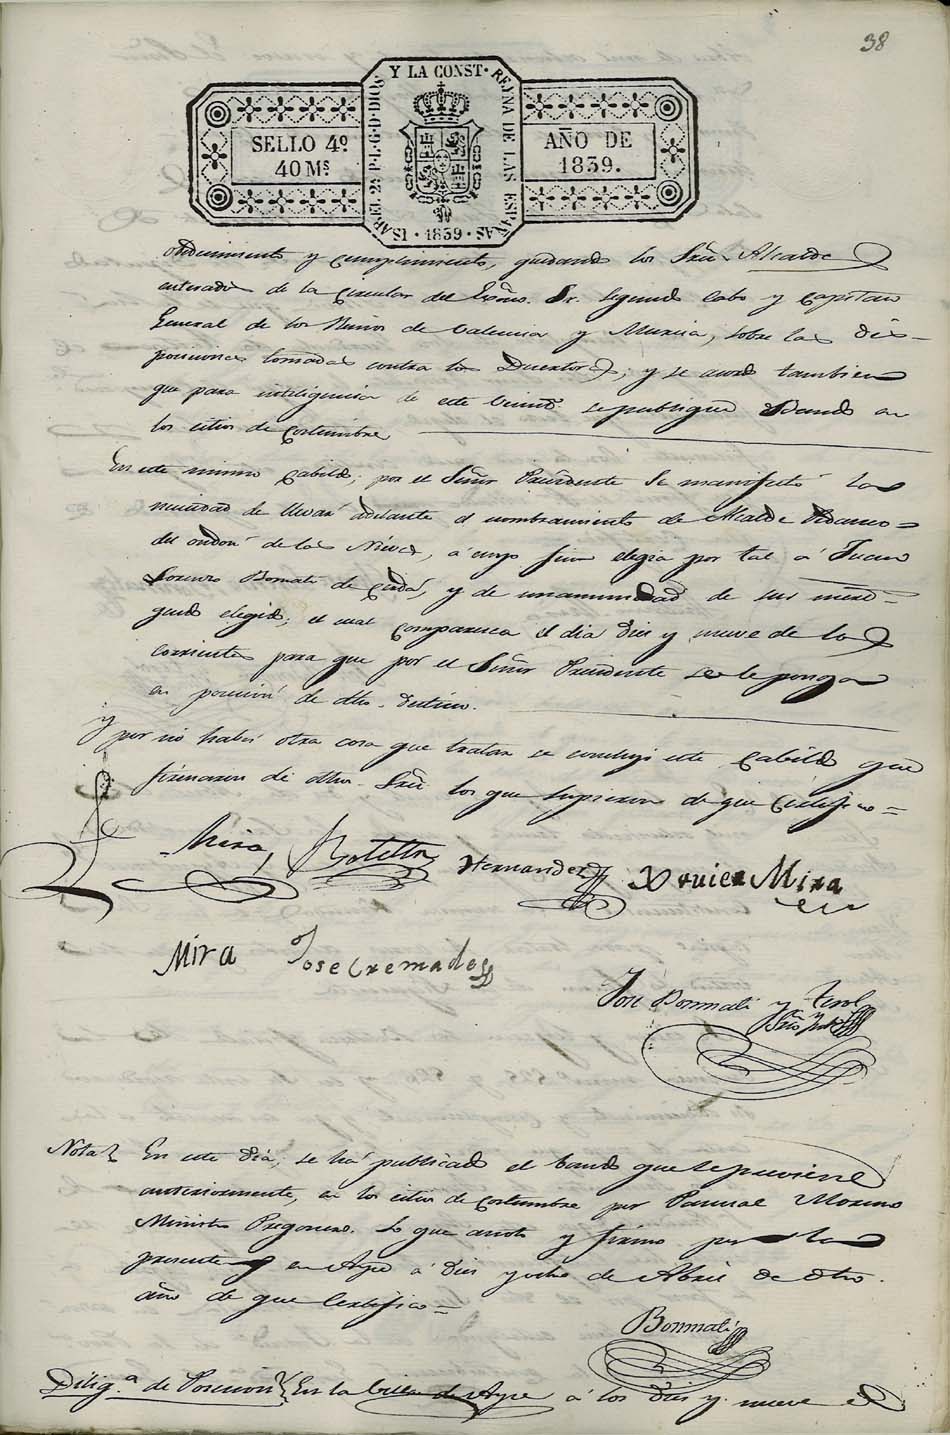 38
SELLO 4º
40 Mˢ
ISABEL 2ª P.L.G.D.DIOS Y LA CONST. REYNA DE LAS ESPAÑAS
· 1839 ·
AÑO DE
1839.
y cumplimiento, quedando los Sres. Alcalde
enterados de la Circular del Exmo. Sr. Segundo Cabo y Capitan
General de los Reinos de Valencia y Murcia, sobre las dis-
posiciones tomadas contra los; y se acordó tambien
que para inteligencia de este se publique Bando en
los sitios de Costumbre
En este mismo Cabildo, por el Señor Presidente se manifestó la
necesidad de llevar adelante el nombramiento de Alcalde Pedaneo
del de las Nieves, á cuyo fin elegia por tal á Juan
Lorenzo Bonmati de, y de unanimidad de sus mer.
quedó elegido; el cual comparezca el dia dies y nueve de los
corrientes para que por el Señor Presidente se le ponga
en posesion de dho. destino.
y por no haber otra cosa que tratar se concluyó este Cabildo que
firmaron de dhos. Sres. los que supieron de que Certifico =
Mira, Botella Hernandez Xavier Mira
Mira Jose Cremades
José Bonmati y Terol
Nota En este dia, se ha publicado el bando que se previene
anteriormente, en los sitios de Costumbre por Pascual Moreno
Ministro Pregonero. Lo que anoto y firmo por la
presente en Aspe á dies y ocho de Abril de dho.
año de que Certifico =
Bonmati
Dilig.ª de Posesion En la Villa de Aspe á los dies y nueve